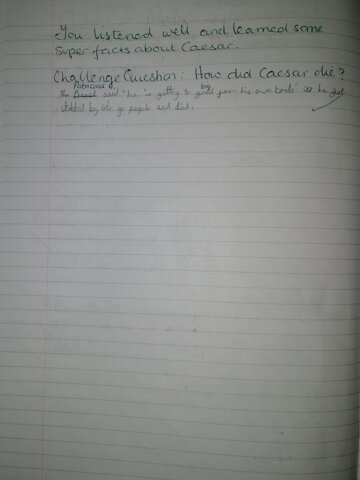 You listened well and learned some
super facts about Caesar.
Challenge Question: How did Caesar die?
Patricians
The said "he is getting to big for his own boots" so he got
stabbed by 60 people and died.